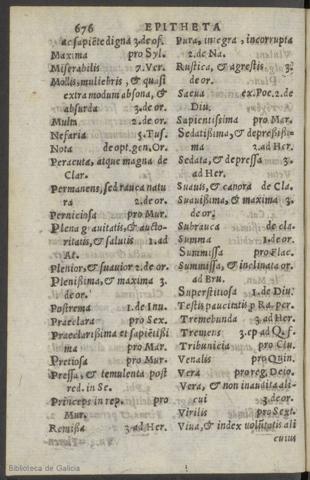 676 EPITHETA
ac sapiẽte digna 3.de of.
Maxima pro Syl.
Miserabilis 7.Ver.
Mollis, muliebris, & quasi
extra modum absona, &
absurda 3.de or.
Multa 2.de or.
Nefaria 5.Tus.
Nota de opt.gen.Or.
Peracuta, atque magna de
Clar.
Permanens, sed rauca natu
ra 2.de or.
Perniciosa pro Mur.
Plena grauitatis, & aucto-
ritatis, & salutis 1.ad
At.
Plenior, & suauior 2.de or.
Plenißima, & maxima 3.
de or.
Postrema 1.de Inu.
Praeclara pro Sex.
Praeclarißima et sapiẽtißi
ma pro Mar.
Pretiosa pro Mur.
Pressa, & temulenta post
red.in Se.
Princeps in rep. pro
Mur.
Remißa 3.ad Her.
Pura, integra, incorrupta
2.de Na.
Rustica, & agrestis 3.
de or.
Saeua ex.Poe.2.de
Diu.
Sapientissima pro Mar.
Sedatißima, & depreßißi-
ma 2.ad Her.
Sedata, & depressa 3.
ad Her.
Suauis, & canora de Cla.
Suauißima, & maxima 3.
de or.
Subrauca de cla.
Summa 1.de or.
Summissa pro Flac.
Summissa, & inclinata or.
ad Bru.
Superstitiosa 1.de Diu.
Testis paucitatis p Ra.per.
Tremebunda 3.ad Her.
Tremens 3.ep ad Q.f.
Tribunicia pro Clu.
Venalis pro Quin.
Vera pro reg.Deio.
Vera, & non inaudita ali-
cui 3.de or.
Virilis pro Sext.
Viua, & index volũtatis ali
cuius
Biblioteca de Galicia